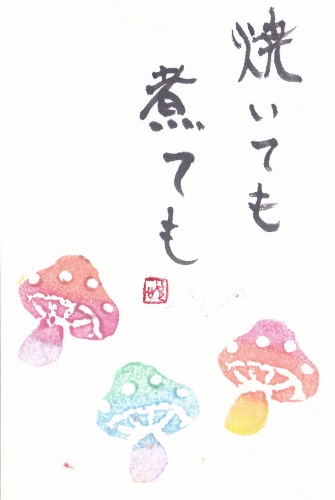 焼いても
煮ても